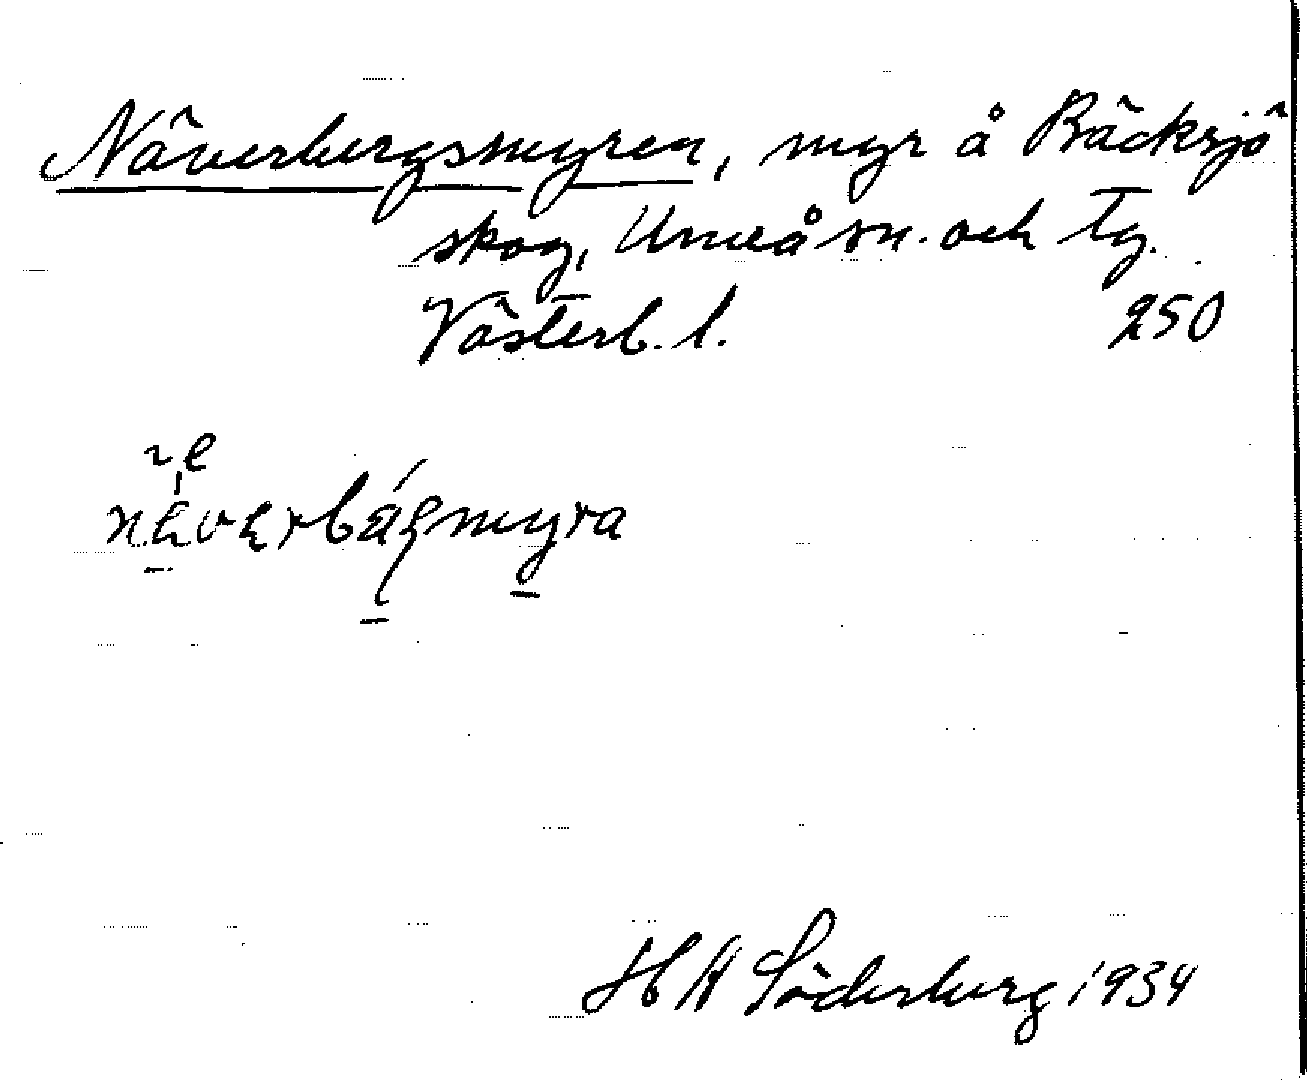 Näverbergsmyren, myr å Bäcksjö
skog, Umeå sn. och tg.
Västerb. l. 250
H A Söderberg 1934